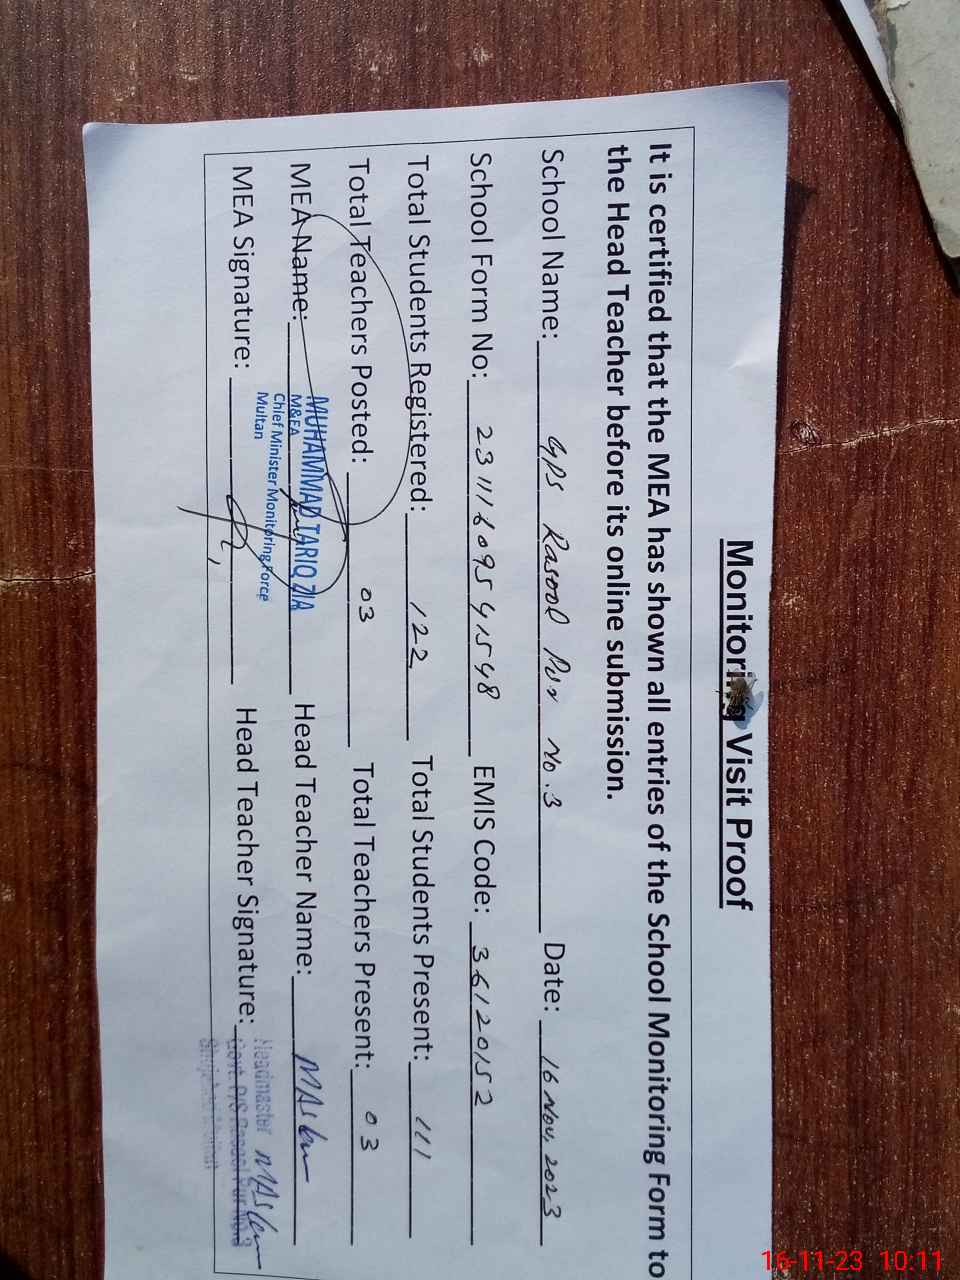 Monitoring Visit Proof
It is certified that the MEA has shown all entries of the School Monitoring Form to
the Head Teacher before its online submission.
School Name: GPS Rasool Pur No.3 Date: 16 Nov, 2023
School Form No: EMIS Code: 36120152
Total Students Registered: 122 Total Students Present: 111
Total Teachers Posted: 03 Total Teachers Present: 03
MEA Name: MUHAMMAD TARIQ ZIA Head Teacher Name:
M&EA
Chief Minister Monitoring Force
Multan
MEA Signature: Head Teacher Signature:
Headmaster
Govt. P/S Rasool Pur No.3
16-11-23 10:11